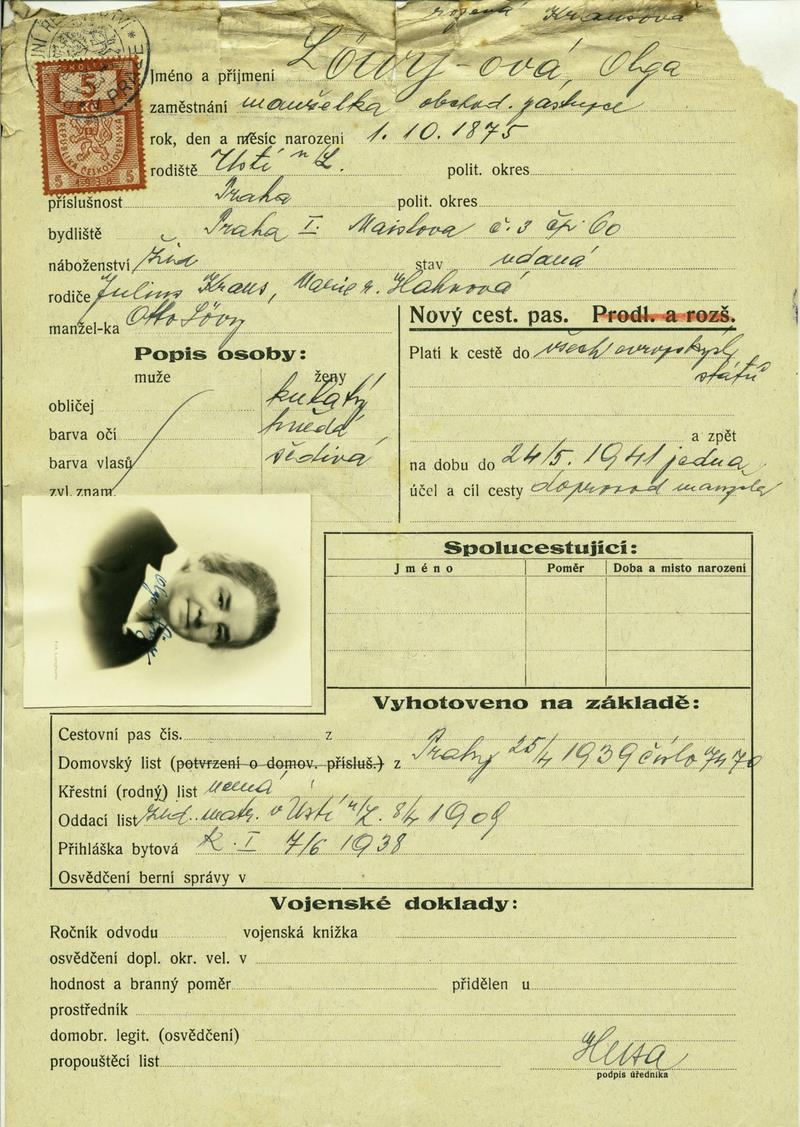 rozená Krausová
5
REPUBLIKA ČESKOSLOVENSKÁ
5 1938 5
Jméno a příjmení Löwy-ová, Olga
zaměstnání manželka obchod. zástupce
rok, den a měsíc narození 1. 10. 1875
rodiště Ústí n/L. polit. okres
příslušnost Praha polit. okres
bydliště Praha I. Maislova č. 3 čp. 60
náboženství žid stav vdaná
rodiče Julius Kraus, Marie r. Hahnová
manžel-ka Otto Löwy
Nový cest. pas. Prodl. a rozš.
Popis osoby:
muže ženy
obličej kulatý
barva očí hnědá
barva vlasů šedivá
zvl. znam.
Platí k cestě do všech evropských
států
a zpět
na dobu do 24/5. 1941 jedna
účel a cíl cesty doprovod manžela
Spolucestující:
Jméno Poměr Doba a místo narození
Vyhotoveno na základě:
Cestovní pas čís. z
Domovský list (potvrzení o domov. přísluš.) z Prahy 25/4 1939 číslo 7470
Křestní (rodný) list nemá
Oddací list žid. matr. v Ústí n/L. 1909
Přihláška bytová R. I 7/6 1938
Osvědčení berní správy v
Vojenské doklady:
Ročník odvodu vojenská knížka
osvědčení dopl. okr. vel. v
hodnost a branný poměr přidělen u
prostředník
domobr. legit. (osvědčení)
propouštěcí list
podpis úředníka